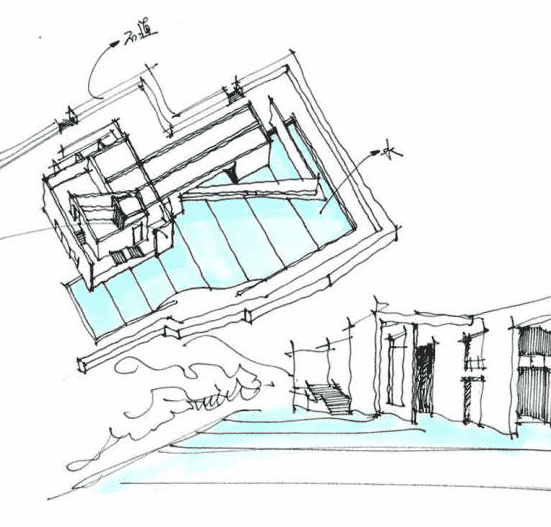 石道
水